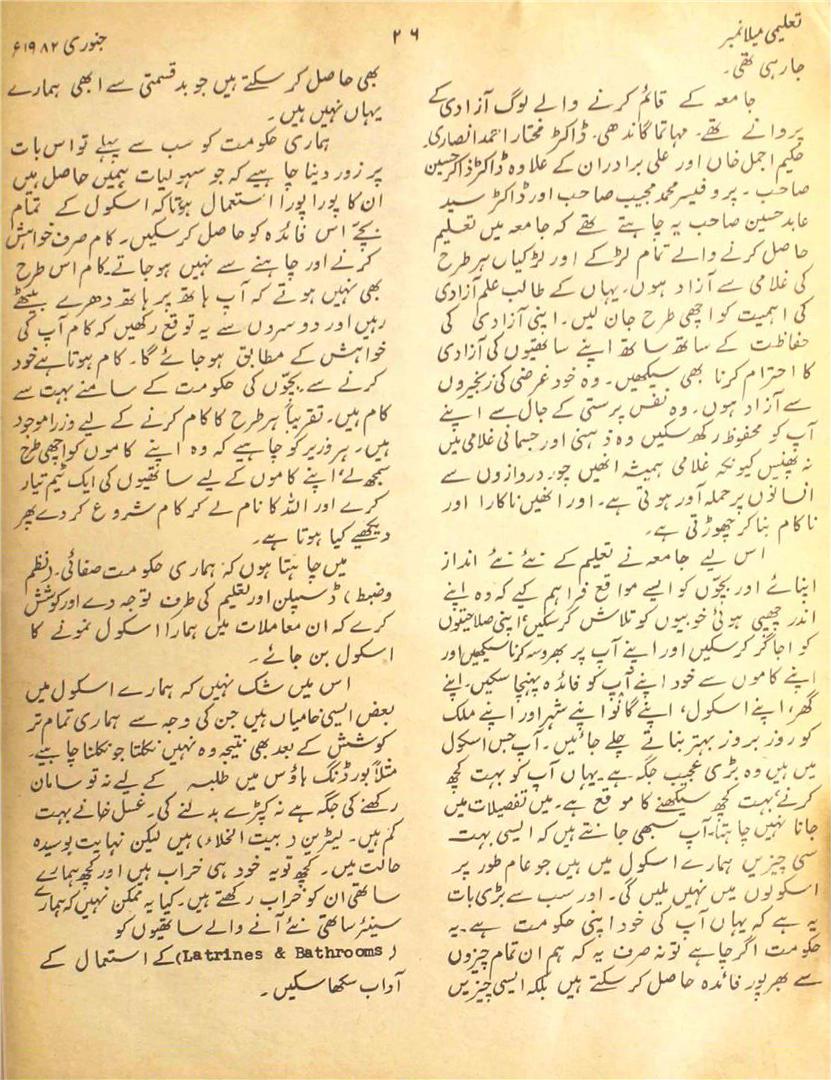 تعلیمی میلا نمبر
۲۶
جنوری ۱۹۸۲ء
جا رہی تھی۔
جامعہ کے قائم کرنے والے لوگ آزادی کے
پروانے تھے۔ مہاتما گاندھی۔ ڈاکٹر مختار احمد انصاری۔
حکیم اجمل خاں اور علی برادران کے علاوہ ڈاکٹر ذاکر حسین
صاحب۔ پروفیسر محمد مجیب صاحب اور ڈاکٹر سید
عابد حسین صاحب یہ چاہتے تھے کہ جامعہ میں تعلیم
حاصل کرنے والے تمام لڑکے اور لڑکیاں ہر طرح
کی غلامی سے آزاد ہوں۔ یہاں کے طالب علم آزادی
کی اہمیت کو اچھی طرح جان لیں۔ اپنی آزادی کی
حفاظت کے ساتھ ساتھ اپنے ساتھیوں کی آزادی
کا احترام کرنا بھی سیکھیں۔ وہ خود غرضی کی زنجیروں
سے آزاد ہوں۔ وہ نفس پرستی کے جال سے اپنے
آپ کو محفوظ رکھ سکیں وہ ذہنی اور جسمانی غلامی میں
نہ پھنسیں کیونکہ غلامی ہمیشہ انھیں چور دروازوں سے
انسانوں پر حملہ آور ہوتی ہے۔ اور انھیں ناکارا اور
ناکام بنا کر چھوڑتی ہے۔
اس لیے جامعہ نے تعلیم کے نئے نئے انداز
اپنائے اور بچّوں کو ایسے مواقع فراہم کیے کہ وہ اپنے
اندر چھپی ہوئی خوبیوں کو تلاش کرسکیں، اپنی صلاحیتوں
کو اجاگر کرسکیں اور اپنے آپ پر بھروسہ کرنا سیکھیں اور
اپنے کاموں سے خود اپنے آپ کو فائدہ پہنچا سکیں۔ اپنے
گھر، اپنے اسکول، اپنے گانو اپنے شہر اور اپنے ملک
کو روز بروز بہتر بناتے چلے جائیں۔ آپ جس اسکول
میں ہیں وہ بڑی عجیب جگہ ہے۔ یہاں آپ کو بہت کچھ
کرنے، بہت کچھ سیکھنے کا موقع ہے۔ میں تفصیلات میں
جانا نہیں چاہتا۔ آپ سبھی جانتے ہیں کہ ایسی بہت
سی چیزیں ہمارے اسکول میں ہیں جو عام طور پر
اسکولوں میں نہیں ملیں گی۔ اور سب سے بڑی بات
یہ ہے کہ یہاں آپ کی خود اپنی حکومت ہے۔ یہ
حکومت اگر چاہے تو نہ صرف یہ کہ ہم ان تمام چیزوں
سے بھرپور فائدہ حاصل کرسکتے ہیں بلکہ ایسی چیزیں
بھی حاصل کرسکتے ہیں جو بدقسمتی سے ابھی ہمارے
یہاں نہیں ہیں۔
ہماری حکومت کو سب سے پہلے تو اس بات
پر زور دینا چاہیے کہ جو سہولیات ہمیں حاصل ہیں
ان کا پورا پورا استعمال ہو تاکہ اسکول کے تمام
بچّے اس فائدہ کو حاصل کرسکیں۔ کام صرف خواہش
کرنے اور چاہنے سے نہیں ہو جاتے۔ کام اس طرح
بھی نہیں ہوتے کہ آپ ہاتھ پر ہاتھ دھرے بیٹھے
رہیں اور دوسروں سے یہ توقع رکھیں کہ کام آپ کی
خواہش کے مطابق ہو جائے گا۔ کام ہوتا ہے خود
کرنے سے۔ بچّوں کی حکومت کے سامنے بہت سے
کام ہیں۔ تقریباً ہر طرح کا کام کرنے کے لیے وزرا موجود
ہیں۔ ہر وزیر کو چاہیے کہ وہ اپنے کاموں کو اچھی طرح
سمجھ لے، اپنے کاموں کے لیے ساتھیوں کی ایک ٹیم تیار
کرے اور اللہ کا نام لے کر کام شروع کر دے پھر
دیکھیے کیا ہوتا ہے۔
میں چاہتا ہوں کہ ہماری حکومت صفائی۔ (نظم
وضبط) ڈسپلن اور تعلیم کی طرف توجہ دے اور کوشش
کرے کہ ان معاملات میں ہمارا اسکول نمونے کا
اسکول بن جائے۔
اس میں شک نہیں کہ ہمارے اسکول میں
بعض ایسی خامیاں ہیں جن کی وجہ سے ہماری تمام تر
کوشش کے بعد بھی نتیجہ وہ نہیں نکلتا جو نکلنا چاہیے۔
مثلاً بورڈنگ ہاؤس میں طلبہ کے لیے نہ تو سامان
رکھنے کی جگہ ہے نہ کپڑے بدلنے کی۔ غسل خانے بہت
کم ہیں۔ لیٹرین (بیت الخلاء) ہیں لیکن نہایت بوسیدہ
حالت میں۔ کچھ تو یہ خود ہی خراب ہیں اور کچھ ہمارے
ساتھی ان کو خراب رکھتے ہیں۔ کیا یہ ممکن نہیں کہ ہمارے
سینئر ساتھی نئے آنے والے ساتھیوں کو
(Latrines & Bathrooms) کے استعمال کے
آداب سکھا سکیں۔